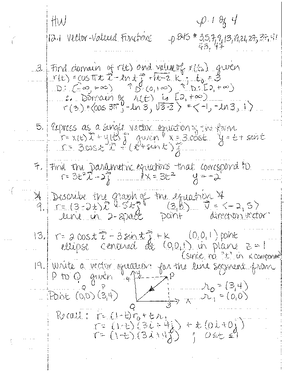 HW p. 1 of 4
12.1 Vector-Valued Functions p 845 # 3,5,7,9,13,19,
3. Find domain of r(t) and value of r(t₀) given
r(t) = cos πt i - ln t j + √t-2 k ; t₀ = 3
D: (-∞, +∞) D: (0, +∞) D: [2, +∞)
∴ Domain of r(t) is [2, +∞)
r(3) = <cos 3π, -ln 3, √3-2> = <-1, -ln 3, 1>
5. Express as a single vector equation of the form
r = x(t) i + y(t) j given x = 3 cos t y = t + sin t
r = 3 cos t i + (t + sin t) j
7. Find the parametric equations that correspond to
r = 3t² i - 2 j x = 3t² y = -2
* Describe the graph of the equation *
9. r = (3-2t) i + 5t j (3, 0) v = <-2, 5>
line in 2-space point direction vector
13. r = 2 cos t i - 3 sin t j + k (0, 0, 1) point
ellipse centered at (0,0,1) in plane z = 1
(since no "t" in k component)
19. Write a vector equation for the line segment from
P to Q given
Point (0,0) (3,4)
r₀ = (3,4)
r₁ = (0,0)
Recall: r = (1-t) r₀ + t r₁
r = (1-t)(3i + 4j) + t(0i + 0j)
r = (1-t)(3i + 4j) ; 0 ≤ t ≤ 1